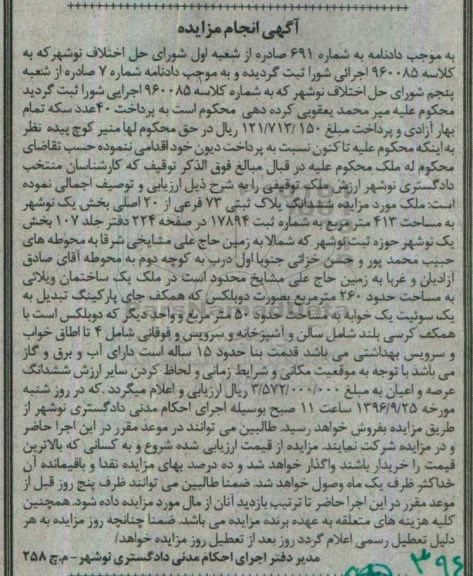 آگهی انجام مزایده
به موجب دادنامه به شماره ۶۹۱ صادره از شعبه اول شورای حل اختلاف نوشهر که به
کلاسه ۹۶۰۰۸۵ اجرائی شورا ثبت گردیده و به موجب دادنامه شماره ۷ صادره از شعبه
پنجم شورای حل اختلاف نوشهر که به شماره کلاسه ۹۶۰۰۸۵ اجرایی شورا ثبت گردید
محکوم علیه میر محمد یعقوبی کرده دهی محکوم است به پرداخت ۴۰عدد سکه تمام
بهار آزادی و پرداخت مبلغ ۱۲۱/۷۱۳/۱۵۰ ریال در حق محکوم لها منیر کوچ پیده نظر
به اینکه محکوم علیه تا کنون نسبت به پرداخت دیون خود اقدامی ننموده حسب تقاضای
محکوم له ملک محکوم علیه در قبال مبالغ فوق الذکر توقیف که کارشناسان منتخب
دادگستری نوشهر ارزش ملک توقیفی را به شرح ذیل ارزیابی و توصیف اجمالی نموده
است: ملک مورد مزایده ششدانگ پلاک ثبتی ۷۳ فرعی از ۲۰ اصلی بخش یک نوشهر
به مساحت ۴۱۳ متر مربع به شماره ثبت ۱۷۸۹۴ در صفحه ۲۲۴ دفتر جلد ۱۰۷ بخش
یک نوشهر حوزه ثبت نوشهر که شمالا به زمین حاج علی مشایخی شرقا به محوطه های
حبیب محمد پور و حسن خزائی جنوبا اول درب به کوچه دوم به محوطه آقای صادق
آزادیان و غربا به زمین حاج علی مشایخ محدود است در ملک یک ساختمان ویلائی
به مساحت حدود ۲۶۰ مترمربع بصورت دوبلکس که همکف جای پارکینگ تبدیل به
یک سوئیت یک خوابه به مساحت حدود ۵۰ متر مربع و واحد دیگر که دوبلکس است با
همکف کرسی بلند شامل سالن و آشپزخانه و سرویس و فوقانی شامل ۴ تا اطاق خواب
و سرویس بهداشتی می باشد قدمت بنا حدود ۱۵ ساله است دارای آب و برق و گاز
می باشد با توجه به موقعیت مکانی و شرایط زمانی و لحاظ کردن سایر ارزش ششدانگ
عرصه و اعیان به مبلغ ۳/۵۷۲/۰۰۰/۰۰۰ ریال ارزیابی و اعلام میگردد .که در روز شنبه
مورخه ۱۳۹۶/۹/۲۵ ساعت ۱۱ صبح بوسیله اجرای احکام مدنی دادگستری نوشهر از
طریق مزایده بفروش خواهد رسید. طالبین می توانند در موعد مقرر در این اجرا حاضر
و در مزایده شرکت نمایند. مزایده از قیمت ارزیابی شده شروع و به کسانی که بالاترین
قیمت را خریدار باشند واگذار خواهد شد و ده درصد بهای مزایده نقدا و باقیمانده آن
حداکثر ظرف یک ماه وصول خواهد شد. ضمنا طالبین می توانند ظرف پنج روز قبل از
موعد مقرر در این اجرا حاضر تا ترتیب بازدید آنان از مال مورد مزایده داده شود. همچنین
کلیه هزینه های متعلقه به عهده برنده مزایده می باشد. ضمنا چنانچه روز مزایده به هر
دلیل تعطیل رسمی اعلام گردد روز بعد از تعطیل روز مزایده خواهد/
مدیر دفتر اجرای احکام مدنی دادگستری نوشهر - م.چ ۲۵۸
۳۹۶